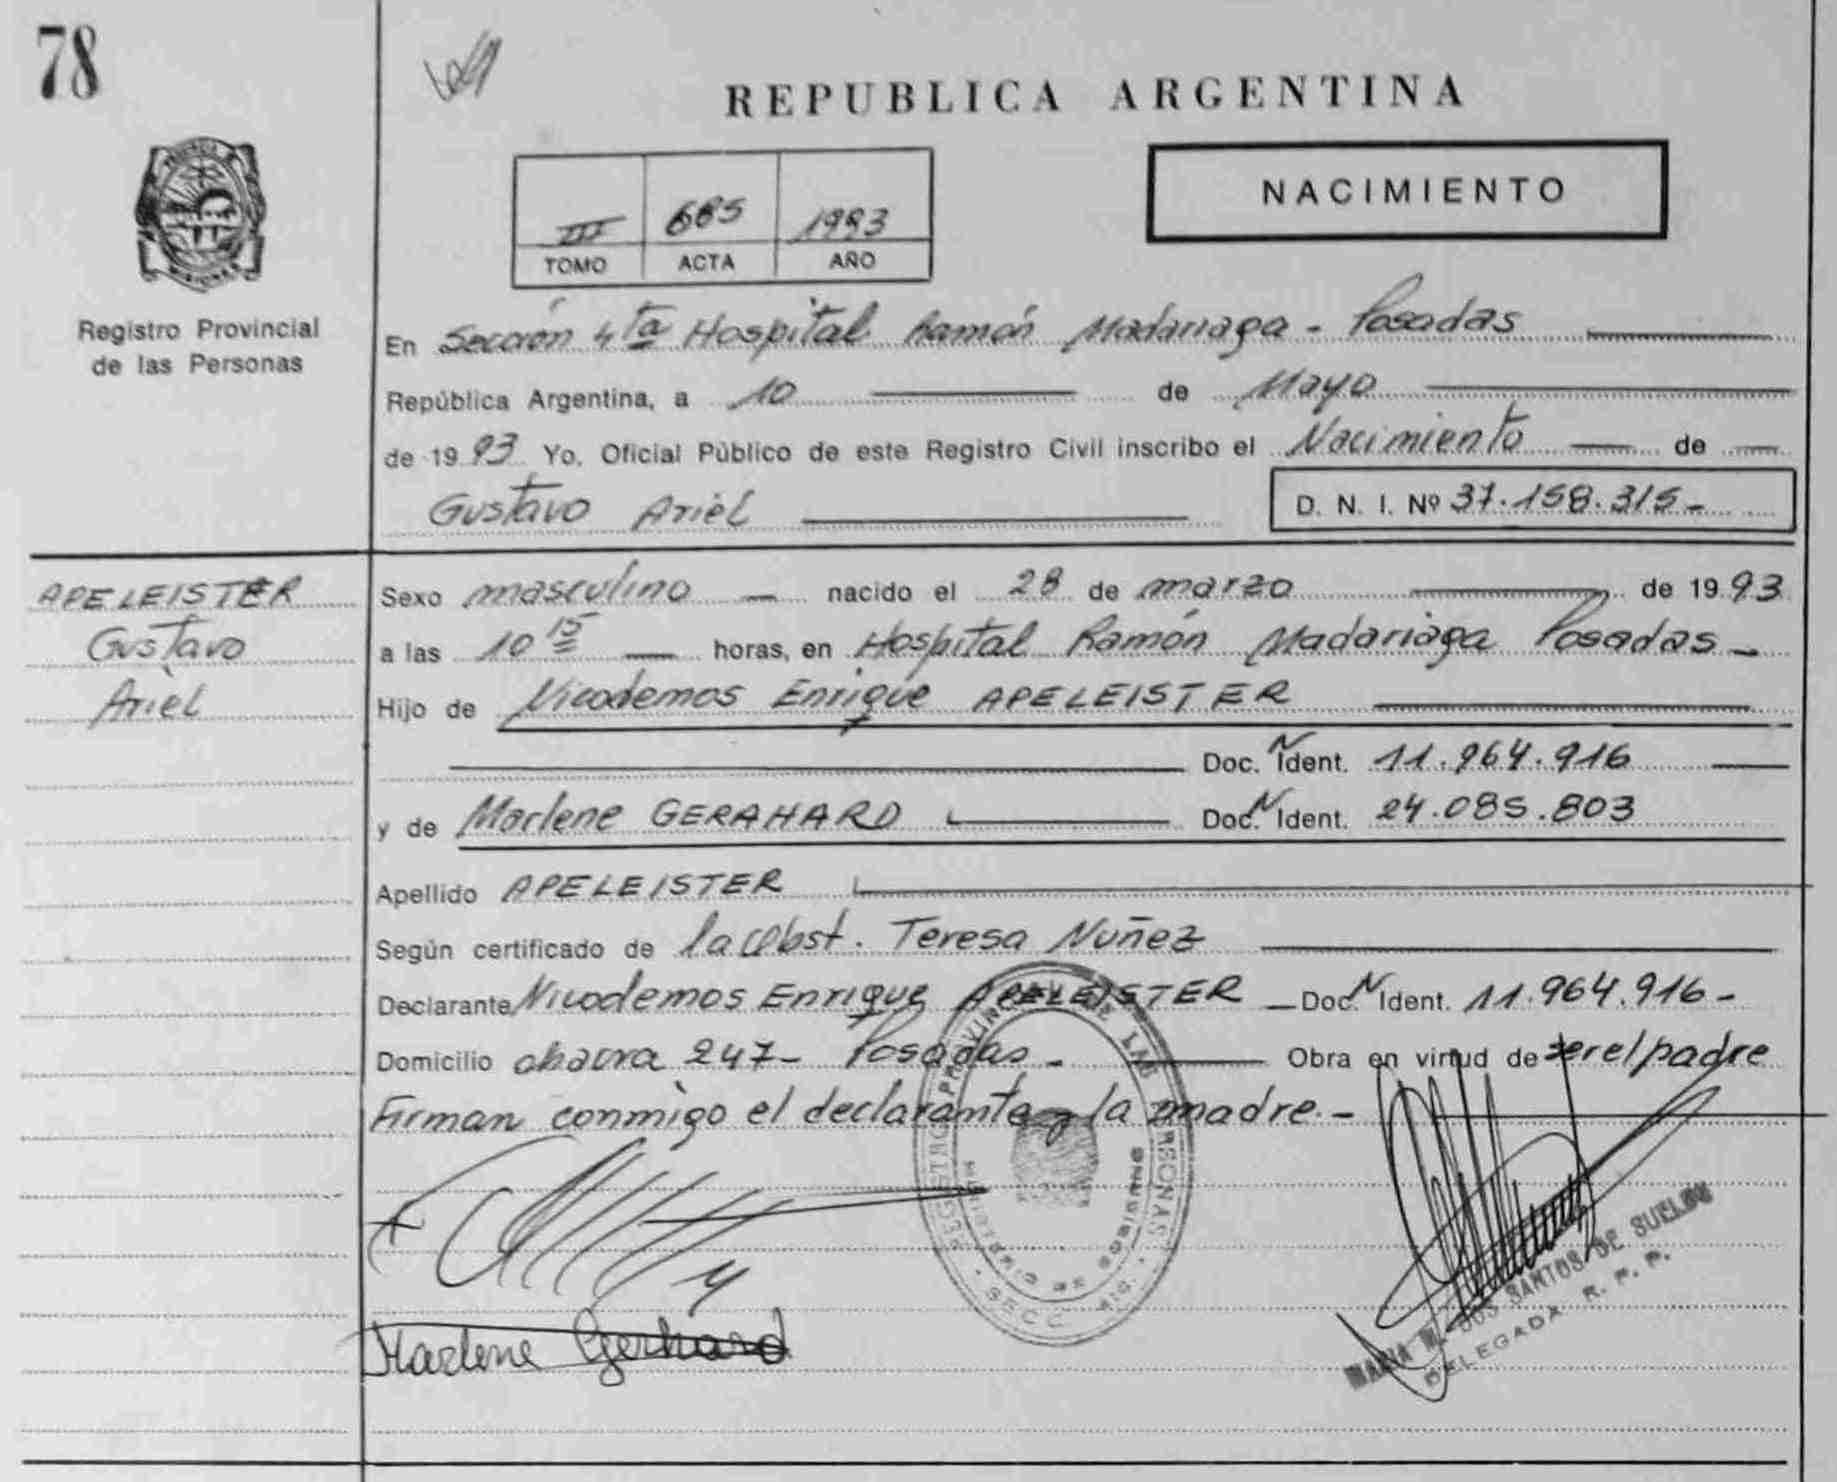 78
REPUBLICA ARGENTINA
NACIMIENTO
III 685 1993
TOMO ACTA AÑO
Registro Provincial
de las Personas
En Sección 4ta Hospital Ramón Madariaga - Posadas
República Argentina, a 10 de Mayo
de 1993 Yo, Oficial Público de este Registro Civil inscribo el Nacimiento de
Gustavo Ariel D. N. I. Nº 37.158.315-
APELEISTER
Gustavo
Ariel
Sexo masculino nacido el 28 de marzo de 1993
a las 10 15 horas, en Hospital Ramón Madariaga Posadas -
Hijo de Nicodemos Enrique APELEISTER
Doc. N Ident. 11.964.916
y de Marlene GERAHARD Doc. N Ident. 24.085.803
Apellido APELEISTER
Según certificado de la Obst. Teresa Nuñez
Declarante Nicodemos Enrique APELEISTER - Doc. N Ident. 11.964.916 -
Domicilio 247 - Posadas - Obra en virtud de ser el padre
Firman conmigo el declarante y la madre. -
REGISTRO PROVINCIAL DE LAS PERSONAS
SECC.
Marlene Gerhard
MARIA DOS SANTOS DE SUELDO
DELEGADA R. P. P.